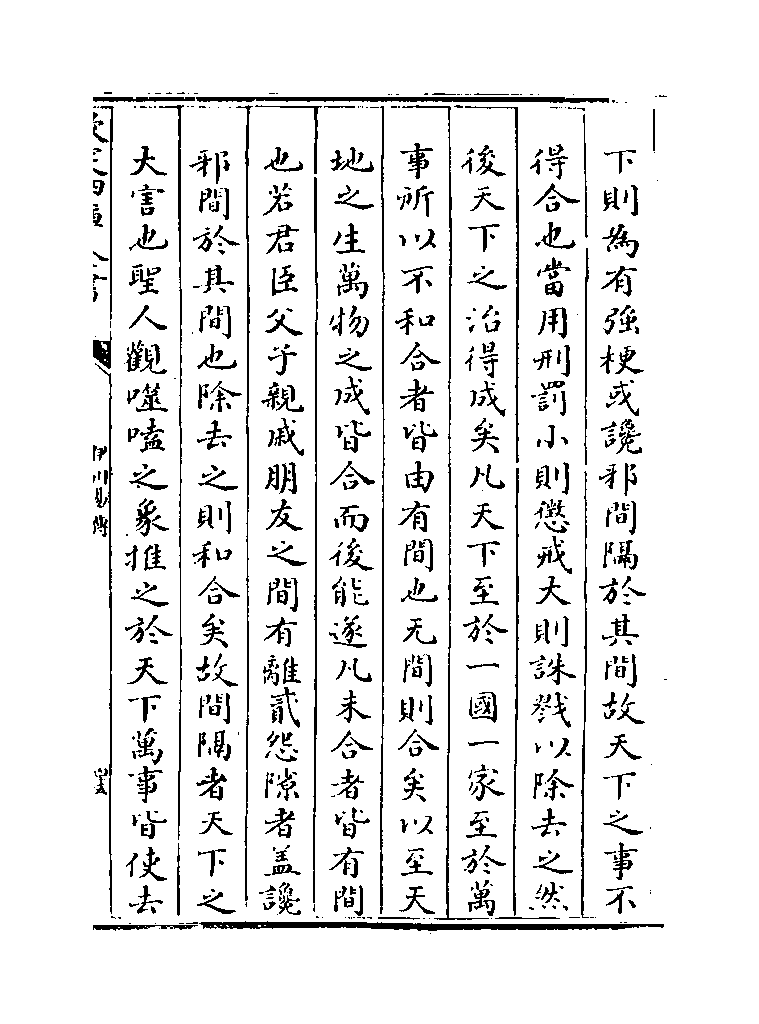 下則為有强梗或讒邪間隔於其間故天下之事不
得合也當用刑罰小則懲戒大則誅戮以除去之然
後天下之治得成矣凡天下至於一國一家至於萬
事所以不和合者皆由有間也无間則合矣以至天
地之生萬物之成皆合而後能遂凡未合者皆有間
也若君臣父子親戚朋友之間有離貳怨隙者盖讒
邪間於其間也除去之則和合矣故間隔者天下之
大害也聖人觀噬嗑之象推之於天下萬事皆使去
伊川易傳